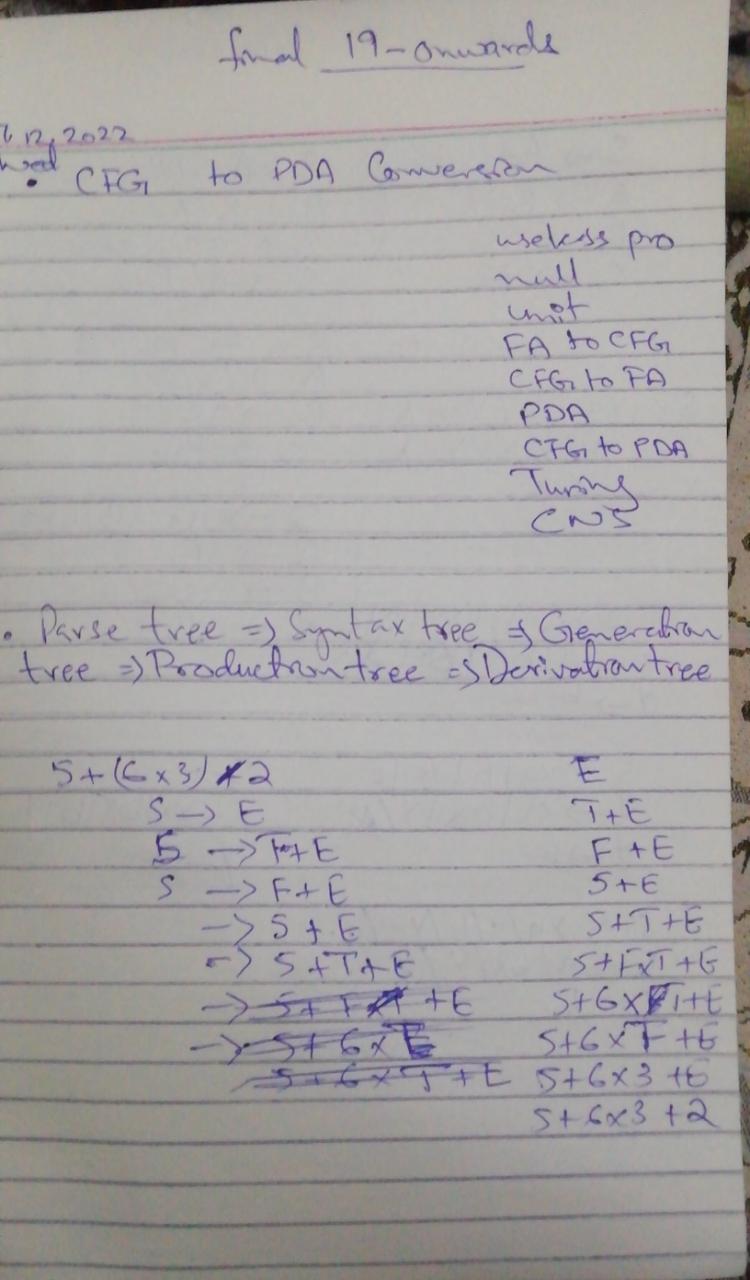 final 19-onwards
12, 2022
wed
• CFG to PDA Conversion
useless pro
null
unit
FA to CFG
CFG to FA
PDA
CFG to PDA
Turing
CNS
• Parse tree => Syntax tree => Generation
tree => Production tree => Derivation tree
5+(6×3)+2 E
S -> E T+E
S -> T+E F+E
S -> F+E 5+E
-> 5+E 5+T+E
-> 5+T+E 5+F×T+E
-> +E 5+6×T+E
-> 5+6× 5+6×F+E
5+6×T+E 5+6×3+E
5+6×3+2